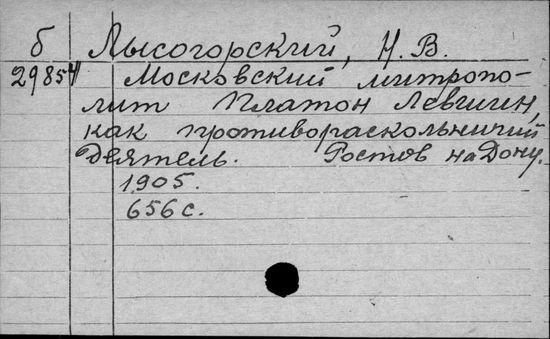 б Лысогорский, Н. В.
29854 Московский митропо-
лит Платон Левшин,
как противораскольничий
деятель. Ростов на Дону.
1905.
656 с.